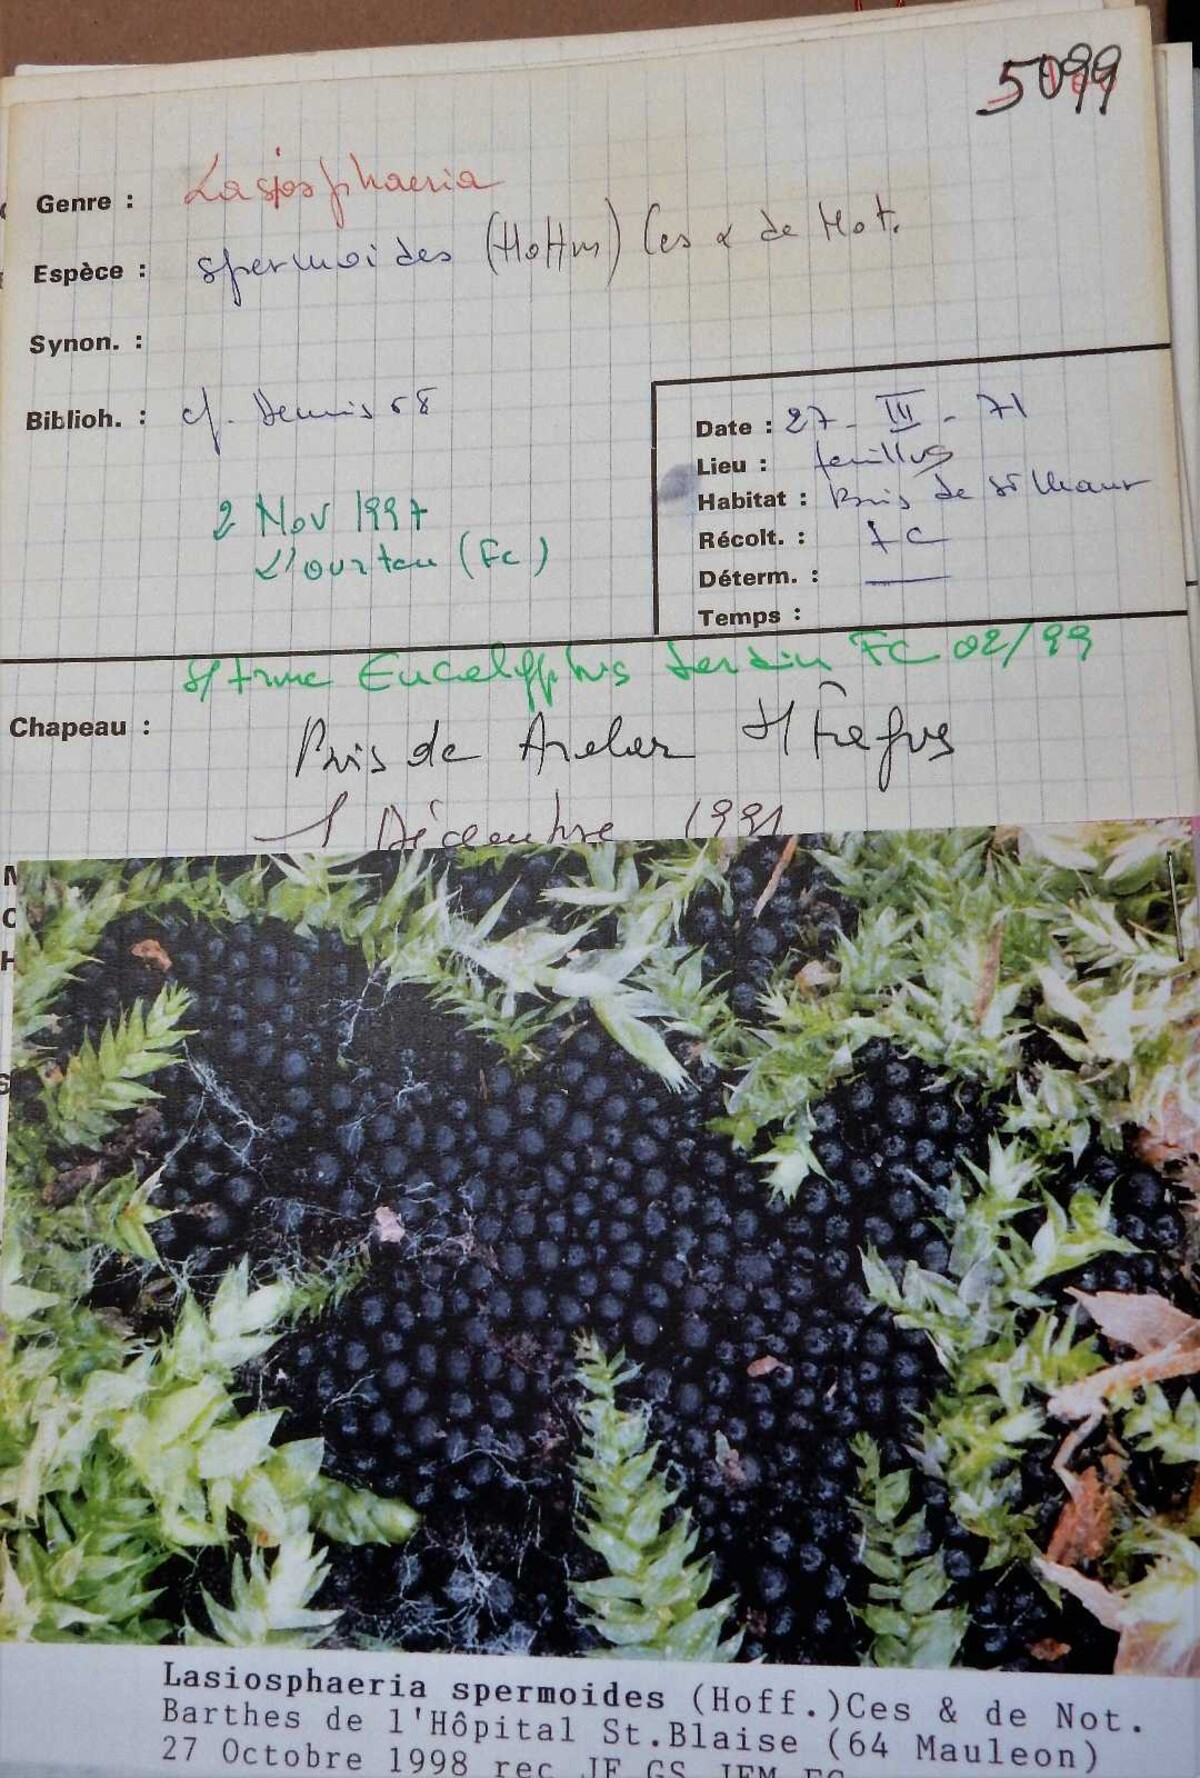 5099
Genre : Lasiosphaeria
Espèce : spermoides (Hoffm) Ces & de Not.
Synon. :
Biblioh. : cf. Dennis 68
Date : 27 - III - 71
Lieu : feuillus
Habitat : Bois de St Maur
Récolt. : FC
Déterm. :
Temps :
2 Nov 1997
L'ourtau (Fc)
s/ tronc Eucalyptus Jardin FC 02/99
Chapeau :
Bois de s/ Fagus
1 Décembre 1991
Lasiosphaeria spermoides (Hoff.)Ces & de Not.
Barthes de l'Hôpital St.Blaise (64 Mauleon)
27 Octobre 1998 rec JF GS JEM FC